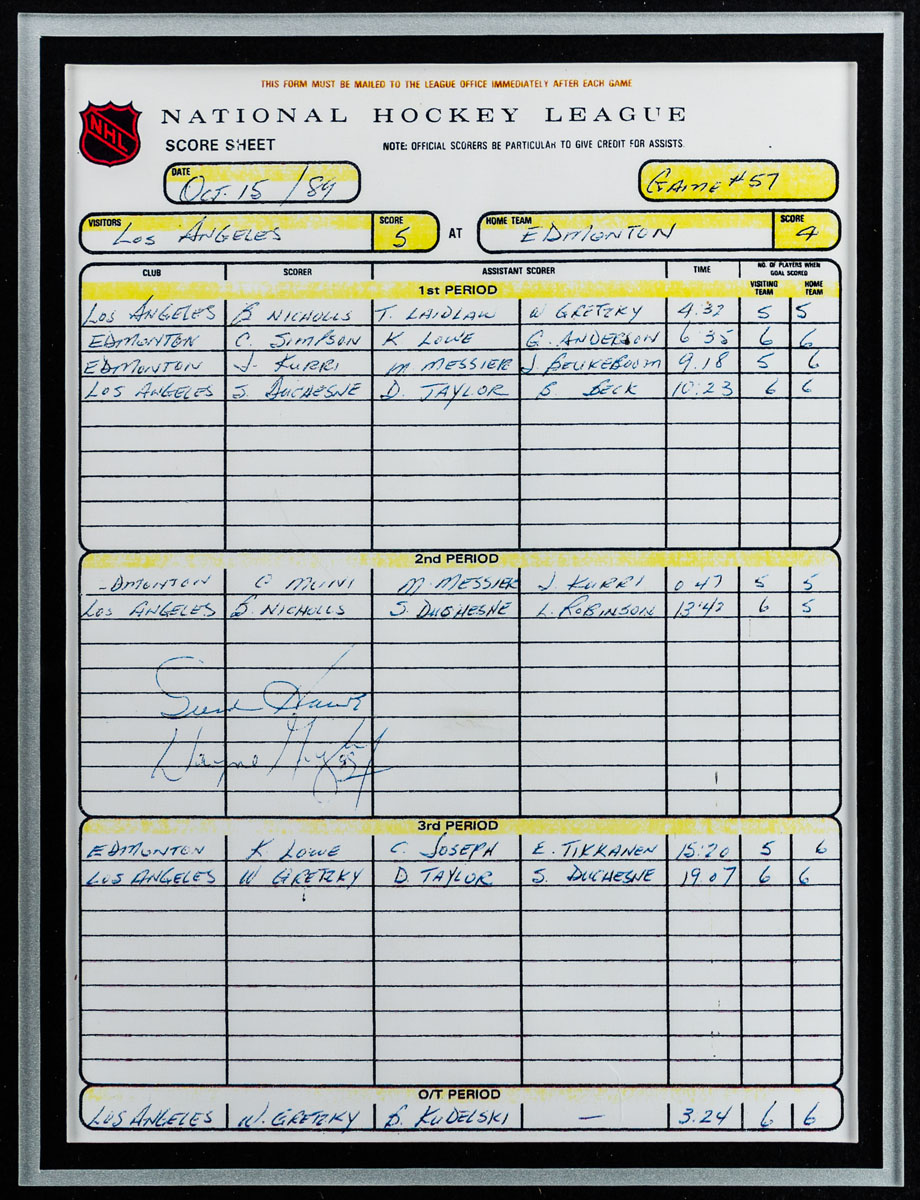 THIS FORM MUST BE MAILED TO THE LEAGUE OFFICE IMMEDIATELY AFTER EACH GAME
NHL
NATIONAL HOCKEY LEAGUE
SCORE SHEET NOTE: OFFICIAL SCORERS BE PARTICULAR TO GIVE CREDIT FOR ASSISTS
DATE OCT. 15 /89 GAME #57
VISITORS LOS ANGELES SCORE 5 AT HOME TEAM EDMONTON SCORE 4
CLUB SCORER ASSISTANT SCORER TIME NO. OF PLAYERS WHEN GOAL SCORED
1st PERIOD VISITING TEAM HOME TEAM
LOS ANGELES B NICHOLLS T. LAIDLAW W GRETZKY 4:32 5 5
EDMONTON C. SIMPSON K LOWE G. ANDERSON 6:35 6 6
EDMONTON J. KURRI M MESSIER J BEUKEBOOM 9.18 5 6
LOS ANGELES S. DUCHESNE D. TAYLOR B. BECK 10:23 6 6
2nd PERIOD
-DMONTON C MUNI M. MESSIER J. KURRI 0 47 5 5
LOS ANGELES B. NICHOLLS S. DUCHESNE L. ROBINSON 13:42 6 5
Wayne Gretzky
3rd PERIOD
EDMONTON K. LOWE C. JOSEPH E. TIKKANEN 15:20 5 6
LOS ANGELES W GRETZKY D. TAYLOR S. DUCHESNE 19.07 6 6
O/T PERIOD
LOS ANGELES W. GRETZKY B. KUDELSKI — 3.24 6 6